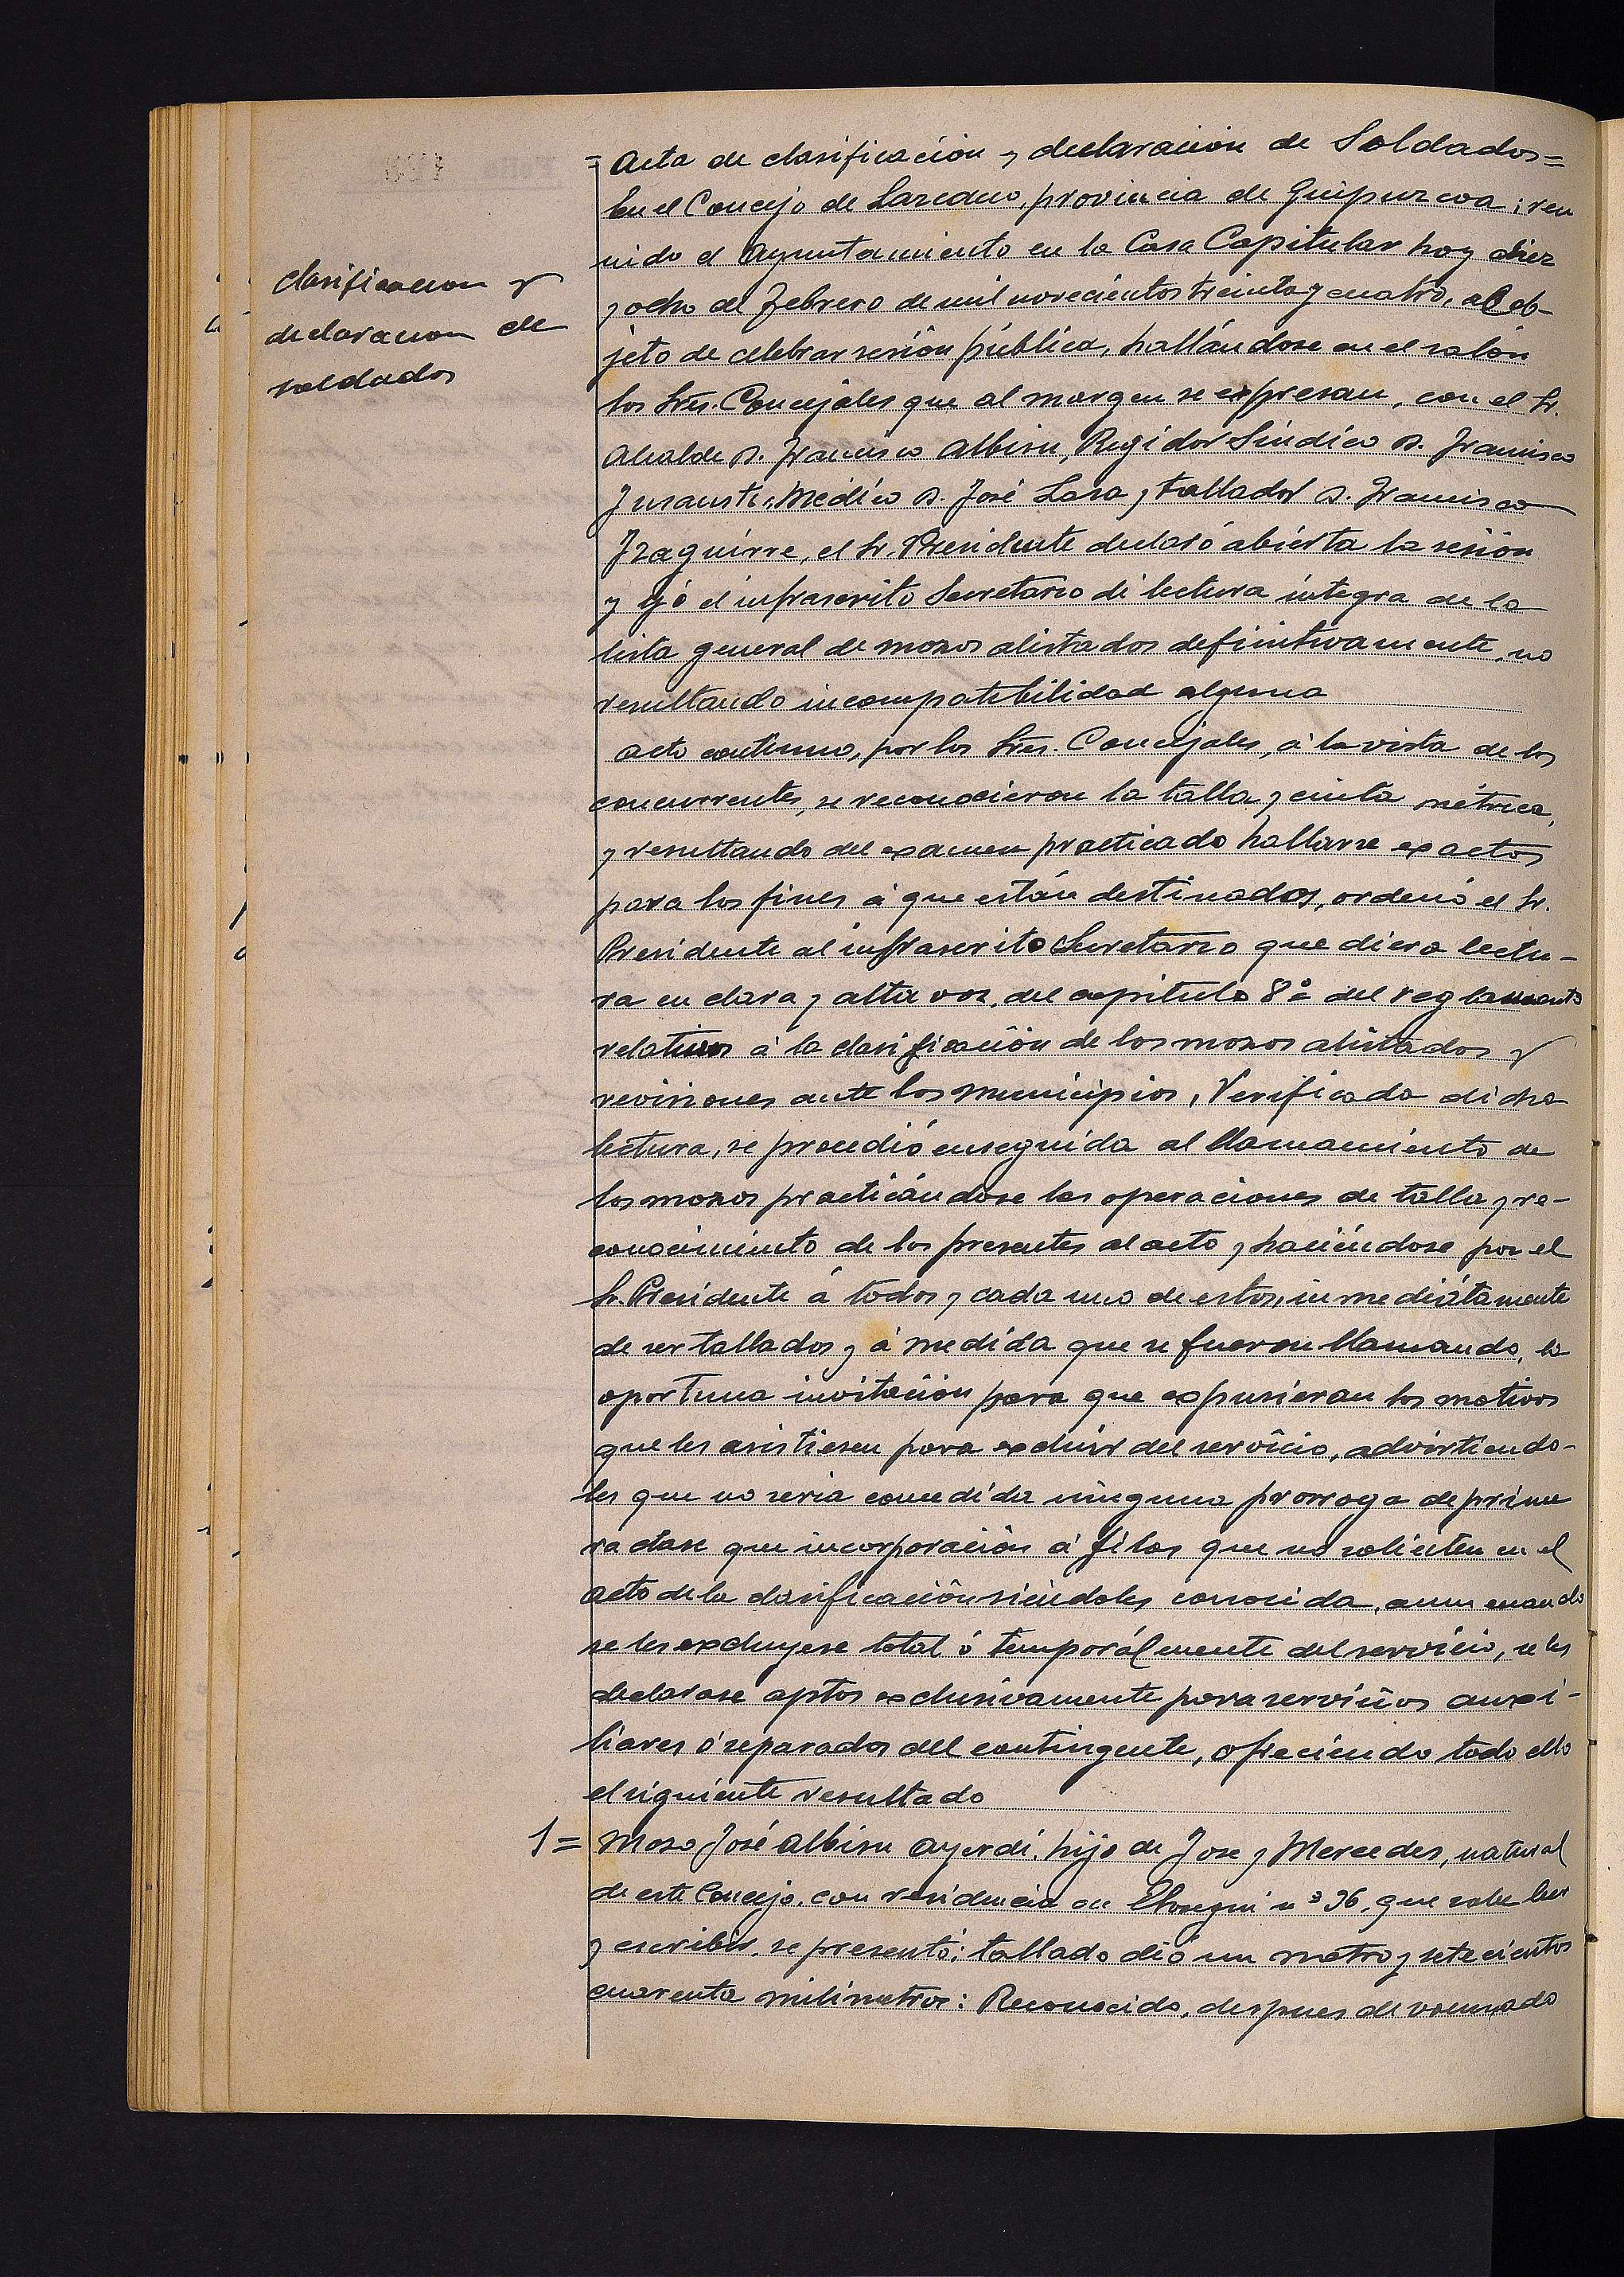 = Acta de clasificación y declaración de Soldados=
En el Concejo de Lazcano, provincia de Guipuzcoa; reu
nido el Ayuntamiento en la Casa Capitular hoy diez
y ocho de Febrero de mil novecientos treinta y cuatro, al ob-
jeto de celebrar sesión pública, hallándose en el salón
los Sres. Concejales que al margen se expresan, con el Sr.
Alcalde D. Francisco Albisu, Regidor Síndico D. Francisco
Jurausti, Médico D. José Lasa y tallador D. Francisco
Izaguirre, el Sr. Presidente declaró abierta la sesión
y yó el infrascrito Secretario di lectura íntegra de la
lista general de mozos alistados definitivamente, no
resultando incompatibilidad alguna
Clasificacion y
declaracion de
soldados
Acto contínuo, por los Sres. Concejales, á la vista de los
concurrentes, se reconocieron la talla y cinta métrica,
y resultando del examen practicado hallarse exactos
para los fines á que están destinados, ordenó el Sr.
Presidente al infrascrito Secretario que diera lectu-
ra en clara y alta voz, del capitulo 8º del reglamento
relativo á la clasificación de los mozos alistados y
revisiones ante los Municipios, Verificada dicha
lectura, se procedió enseguida al llamamiento de
los mozos practicándose las operaciones de talla y re-
conocimiento de los presentes al acto y haciéndose por el
Sr. Presidente á todos y cada uno de estos, inmediátamente
de ser tallados y á medida que se fueron llamando, la
oportuna invitación para que expusieran los motivos
que les asistiesen para excluir del servicio, advirtiendo-
les que no seria concedida ninguna prorroga de prime
ra clase que incorporación á filas que no soliciten en el
acto de la clasificación siéndoles conocida, aun cuando
se les excluyese total ó temporálmente del servicio, se les
declarase aptos exclusivamente para servicios auxi-
liares ó separados del contingente, ofreciendo todo ello
el siguiente resultado
1= Mozo José Albisu Ayerdi, hijo de Jose y Mercedes, natural
de este Concejo, con residencia en Elosegui nº 36, que sabe leer
y escribir, se presentó: tallado dió un metro y setecientos
cuarenta milimetros: Reconocido, despues de vacunado